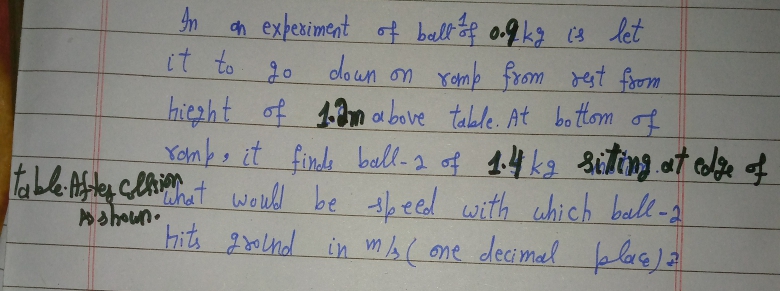 In an experiment of ball 1 of 0.9 kg is let
it to go down on romp from rest from
hieght of 1.2m above table. At bottom of
romp, it finds ball-2 of 1.4 kg sitting at edge of
table. After collision
is shown.
what would be speed with which ball-2
hits ground in m/s ( one decimal place)?